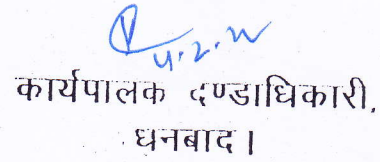 4.2.22
कार्यपालक दण्डाधिकारी,
धनबाद।